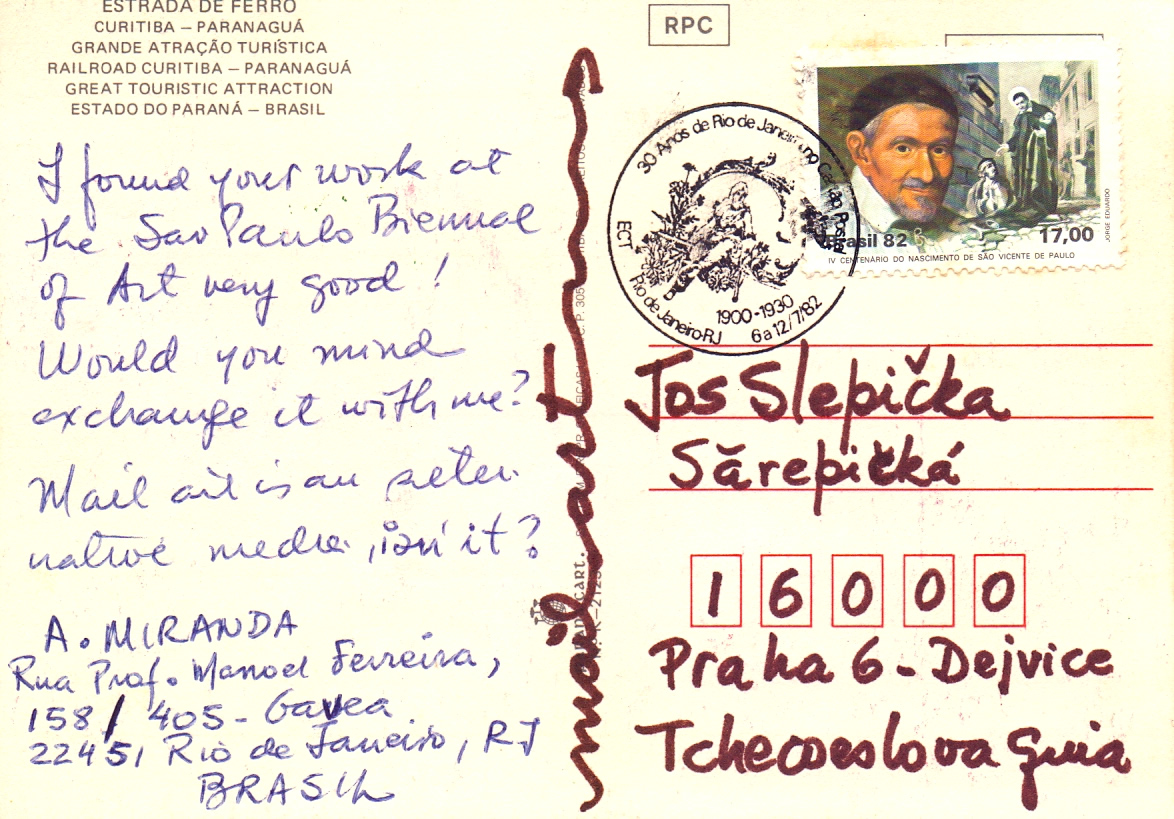 ESTRADA DE FERRO
CURITIBA – PARANAGUÁ
GRANDE ATRAÇÃO TURÍSTICA
RAILROAD CURITIBA – PARANAGUÁ
GREAT TOURISTIC ATTRACTION
ESTADO DO PARANÁ – BRASIL
I found your work at
the Sao Paulo Biennal
of Art very good!
Would you mind
exchange it with me?
Mail art is an alter
native media, isn't it?
A. MIRANDA
Rua Prof. Manoel Ferreira,
158/405 - Gavea
22451 Rio de Janeiro, RJ
BRASIL
mail art
RPC
30 Anos de Rio de Janeiro no
ECT
Rio de Janeiro-RJ
1900-1930
6 a 12/7/82
Brasil 82
17,00
JORGE EDUARDO
IV CENTENÁRIO DO NASCIMENTO DE SÃO VICENTE DE PAULO
Jos Slepička
Sărepičká
16000
Praha 6 - Dejvice